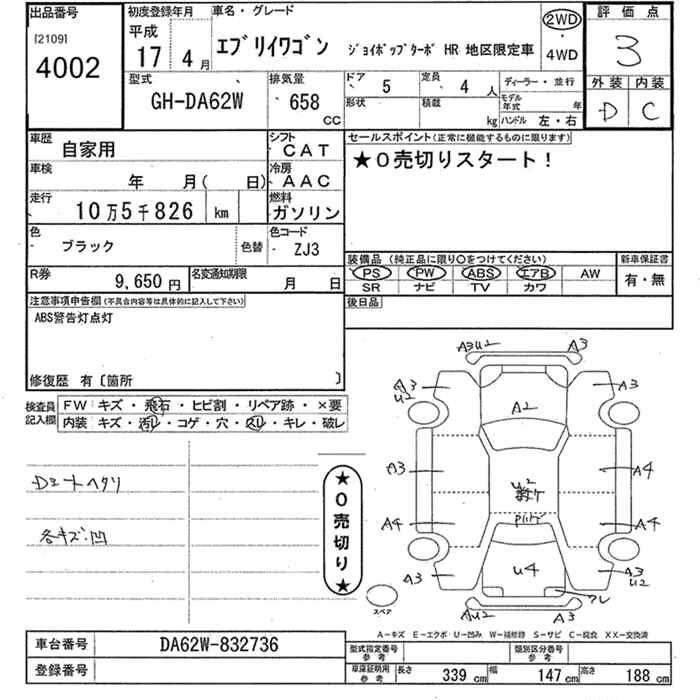 出品番号
[2109]
4002
初度登録年月
平成
17 4月
車名・グレード
エブリイワゴン ジョイポップターボ HR 地区限定車
2WD
・
4WD
評価点
3
外装 内装
D C
型式
GH-DA62W
排気量
658
CC
ドア
5
定員
4 人
形状
積載
kg
ディーラー・並行
モデル年式 年
ハンドル 左・右
車歴
自家用
シフト
CAT
車検
年 月( 日)
冷房
AAC
走行
10万5千826 km
燃料
ガソリン
色
ブラック
色替
色コード
ZJ3
R券
9,650 円
名変通知期限
月 日
セールスポイント(正常に機能するものに限ります)
★0売切りスタート!
装備品 (純正品に限り○をつけてください)
PS PW ABS エアB AW
SR ナビ TV カワ
新車保証書
有・無
後日品
注意事項申告欄(不具合内容等は具体的に記入して下さい)
ABS警告灯点灯
修復歴 有〔箇所 〕
検査員記入欄
FW キズ・飛石・ヒビ割・リペア跡・×要
内装 キズ・汚れ・コゲ・穴・スレ・キレ・破レ
Dシートヘタリ
各キズ.凹
★0売切り★
A3U2 A3
A3 U2 A3
A2
A3 A4
U2
A4 A4
U4
A3 A3 U2
ワレ
AU2 A3
スペア
A-キズ E-エクボ U-凹み W-補修跡 S-サビ C-腐食 XX-交換済
車台番号 DA62W-832736
登録番号
型式指定番号 参考
類別区分番号 参考
車庫証明用 参考 長さ 339 cm 幅 147 cm 高さ 188 cm